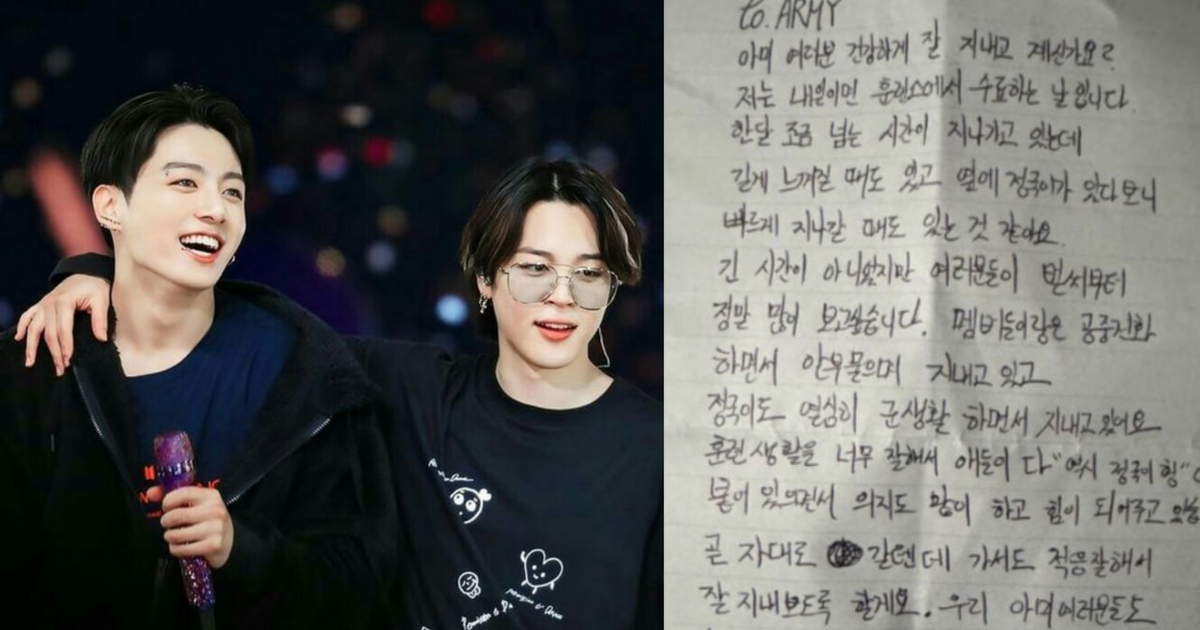 to. ARMY
아미 여러분 건강하게 잘 지내고 계신가요?
저는 내일이면 훈련소에서 수료하는 날입니다.
한달 조금 넘는 시간이 지나가고 있는데
길게 느껴질 때도 있고 옆에 정국이가 있다보니
빠르게 지나간 때도 있는 것 같아요.
긴 시간이 아니었지만 여러분들이 벌써부터
정말 많이 보고싶습니다. 멤버들이랑은 공중전화
하면서 안부물으며 지내고 있고
정국이도 열심히 군생활 하면서 지내고있어요
훈련생활을 너무 잘해서 애들이 다 "역시 정국이 형"
붙어 있으면서 의지도 많이 하고 힘이 되어주고
곧 자대로 갈텐데 가서도 적응잘해서
잘 지내보도록 할게요. 우리 아미여러분들도